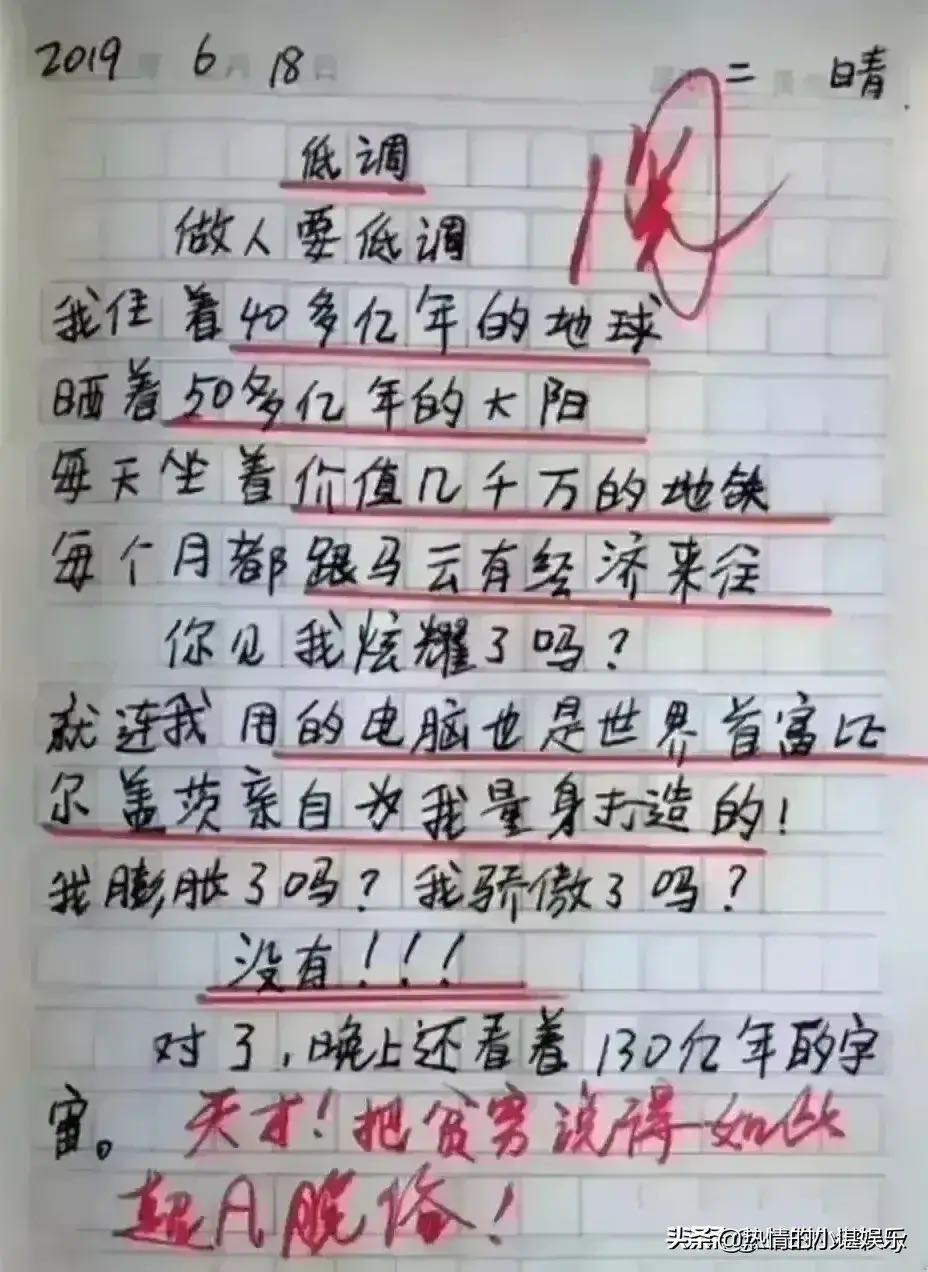 2019年 6月 18日 二 晴
低调
做人要低调
我住着40多亿年的地球
晒着50多亿年的大阳
每天坐着价值几千万的地铁
每个月都跟马云有经济来往
你见我炫耀了吗?
就连我用的电脑也是世界首富比
尔盖茨亲自为我量身打造的!
我膨胀了吗?我骄傲了吗?
没有!!!
对了,晚上还看着130亿年的宇
宙。天才!把贫穷说得如此
超凡脱俗!
头条@热情的小堪娱乐